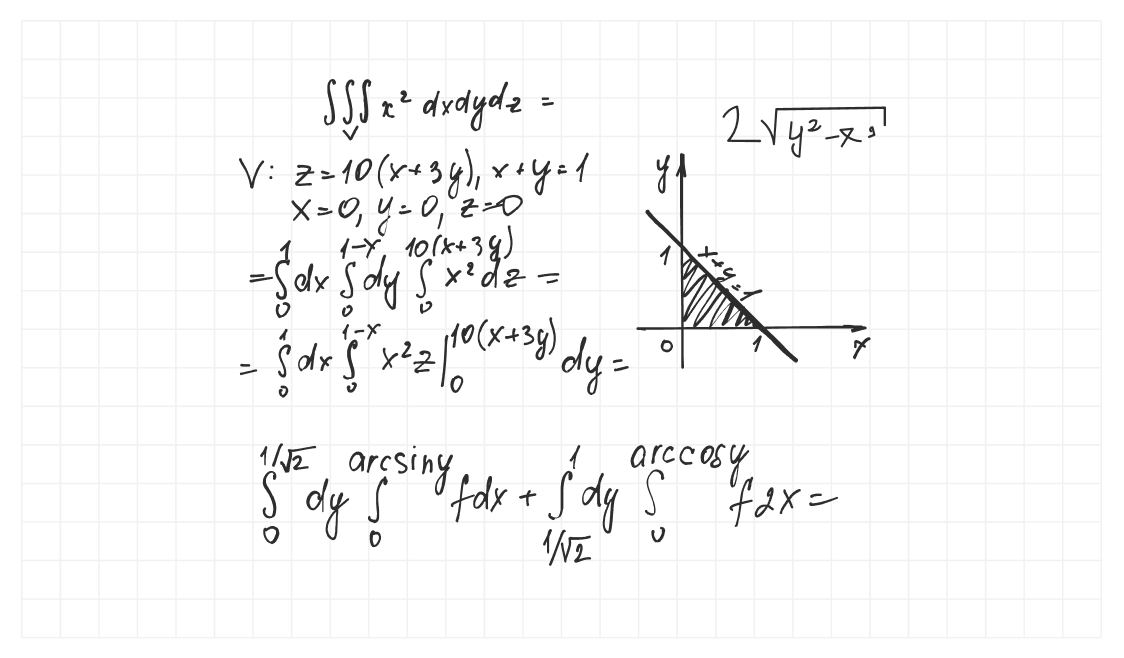 ∫∫∫ x² dxdydz =
V
2√(y²-x³)
V: z=10(x+3y), x+y=1
x=0, y=0, z=0
=∫₀¹ dx ∫₀^(1-x) dy ∫₀^(10(x+3y)) x² dz =
= ∫₀¹ dx ∫₀^(1-x) x²z |₀^(10(x+3y)) dy =
y
1
x+y=1
0
1
x
∫₀^(1/√2) dy ∫₀^(arcsiny) fdx + ∫_(1/√2)^1 dy ∫₀^(arccosy) f2x =